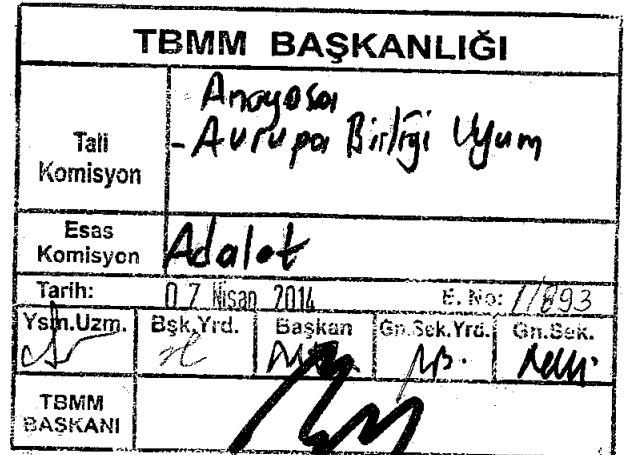 TBMM BAŞKANLIĞI
Tali Komisyon
Anayasa
- Avrupa Birliği Uyum
Esas Komisyon
Adalet
Tarih: 07 Nisan 2014 E. No: 1/893
Ysm.Uzm. Bşk.Yrd. Başkan Gn.Sek.Yrd. Gn.Sek.
TBMM BAŞKANI